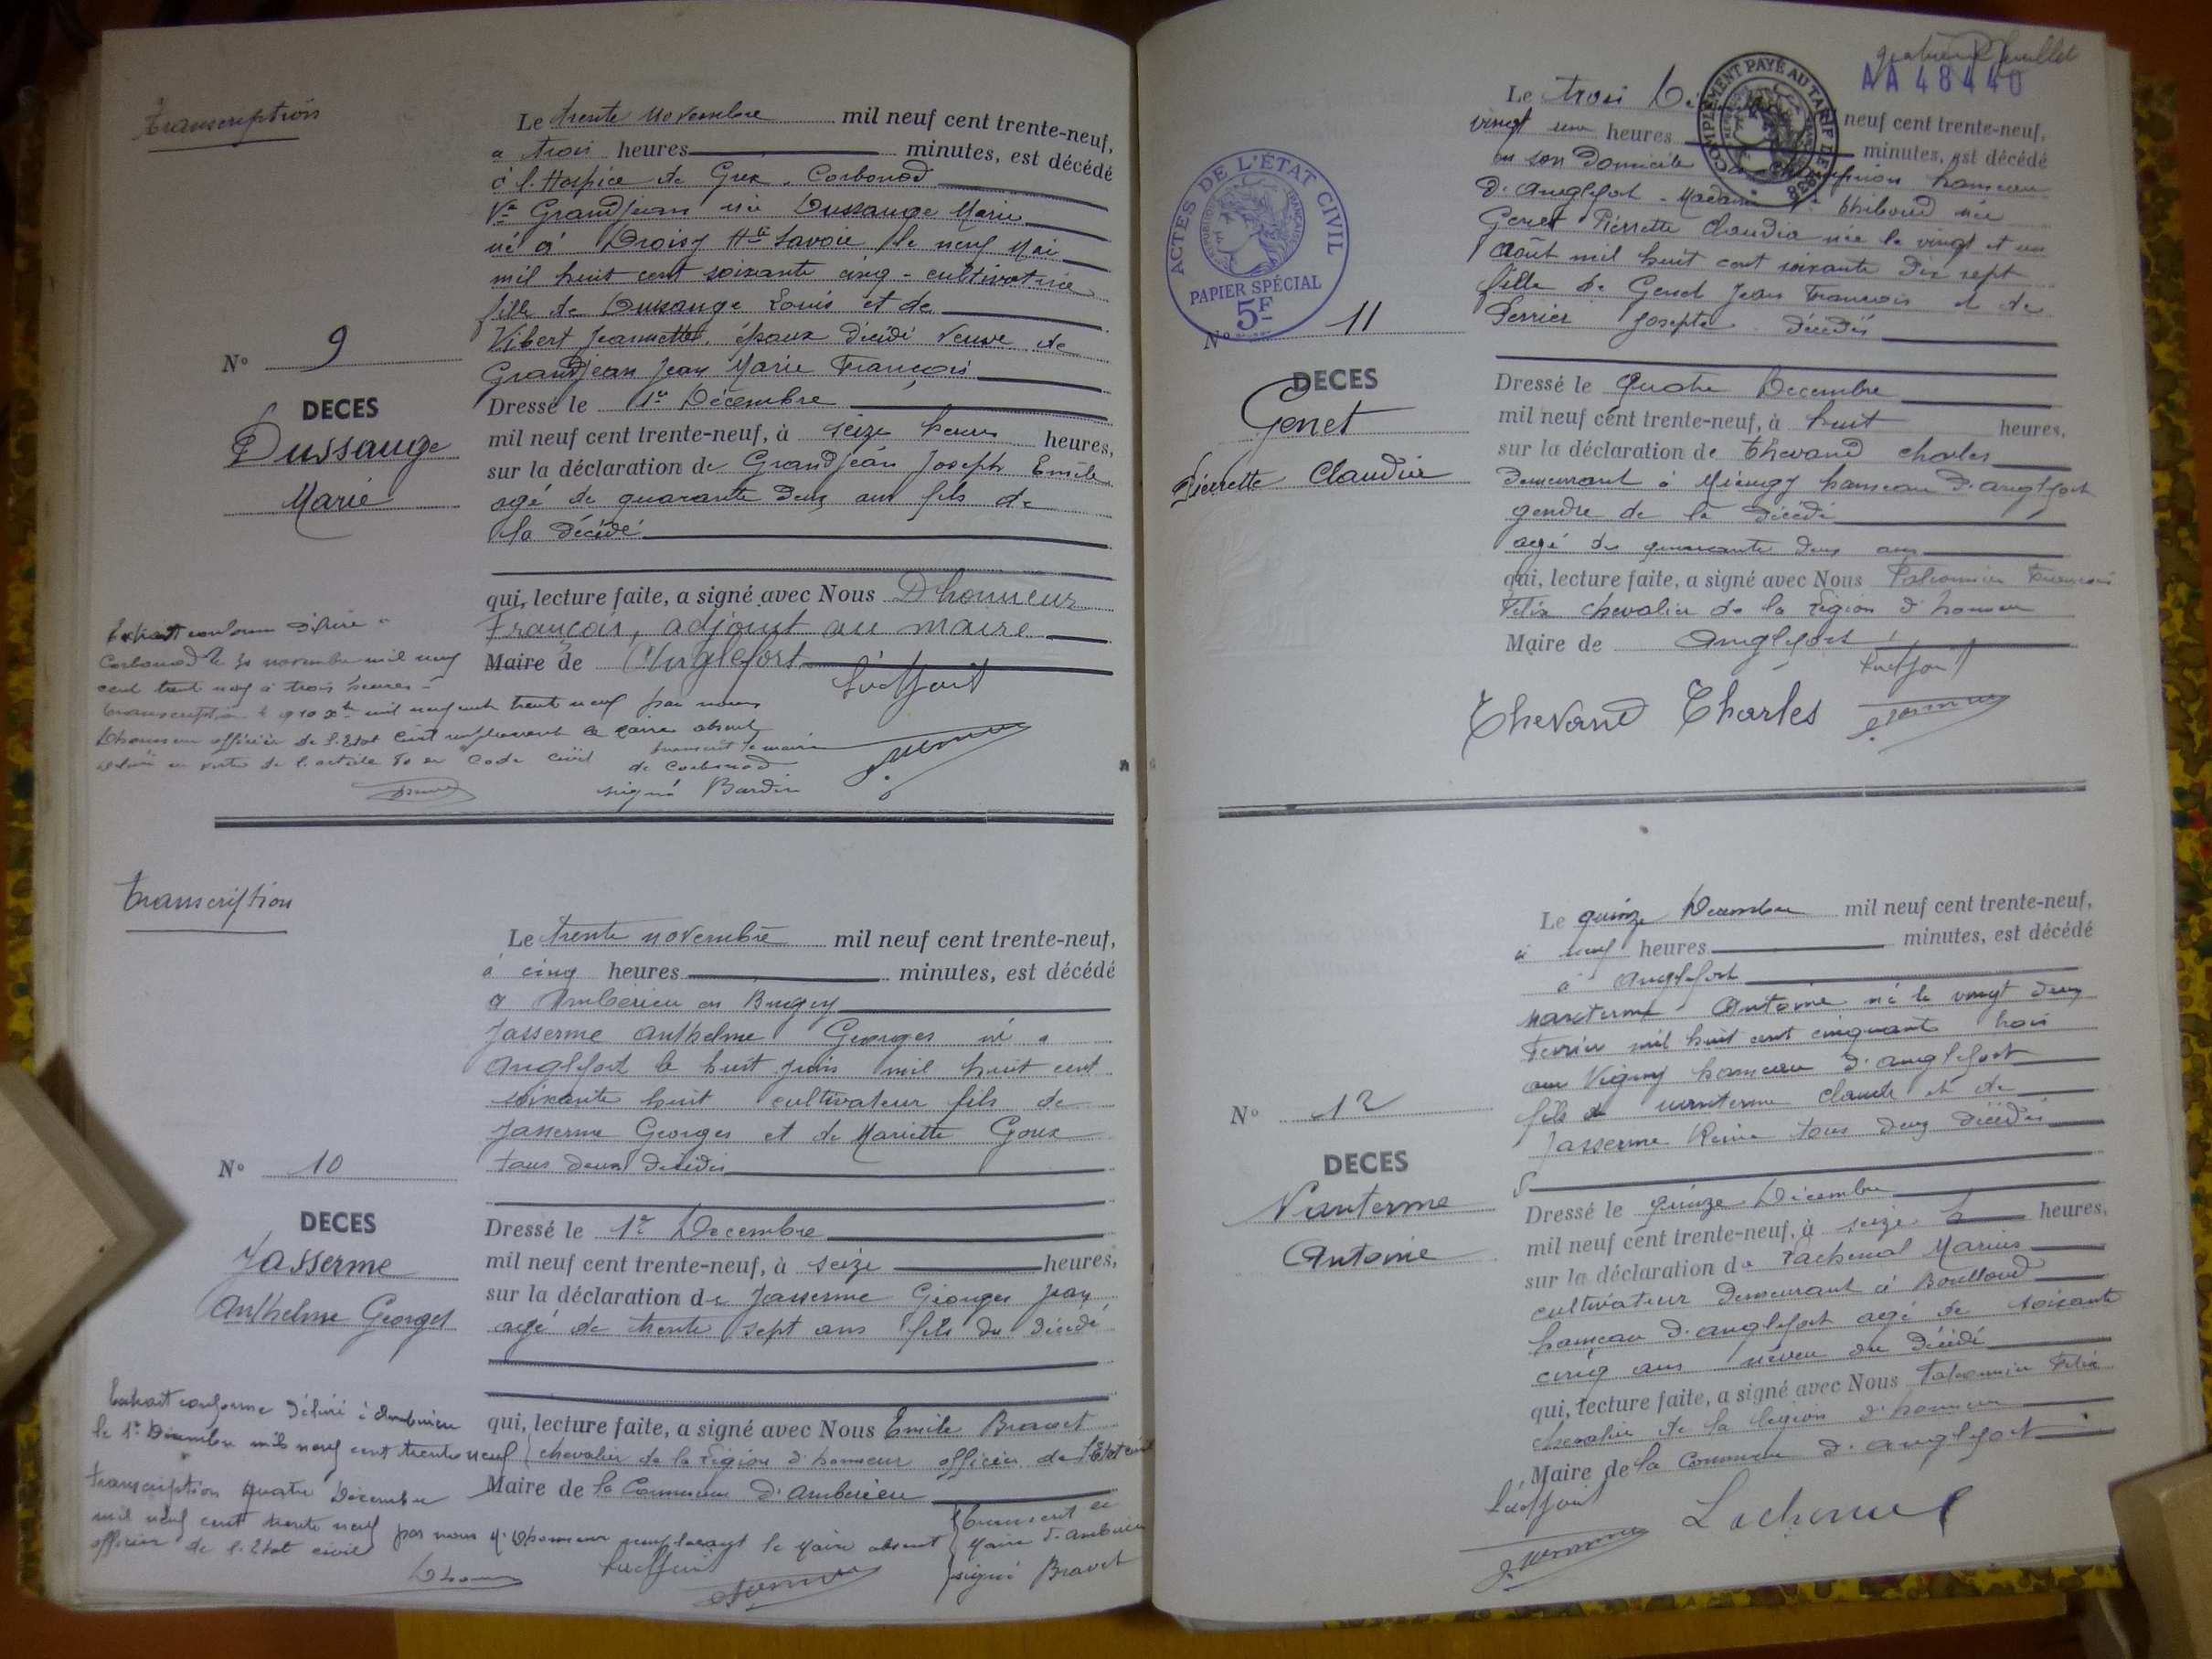 transcription
Le trente novembre mil neuf cent trente-neuf,
a trois heures minutes, est décédé
à l'Hospice de Grex. Corbonod
Vve Grandjean née Dussauge Marie
né à Droisy Hte Savoie le neuf Mai
mil huit cent soixante cinq - cultivatrice
fille de Dussauge Louis et de
Vibert Jeannette, époux décidé veuve de
Grandjean Jean Marie François
N° 9
DECES
Dussauge
Marie
Dressé le 1er Décembre
mil neuf cent trente-neuf, à seize heures heures,
sur la déclaration de Grandjean Joseph Emile
agé de quarante deux ans fils de
la décédé
qui, lecture faite, a signé avec Nous Dhonneur
François, adjoint au maire
Maire de Anglefort
Extrait conforme délivré
Corbonod le 30 novembre mil neuf
cent trente neuf à trois heures
transcription mil neuf cent trente neuf par nous
Dhonneur officier de l'Etat Civil remplacent le maire absent
en vertu de l'article 80 du Code civil
de Corbonod
signé Bardin
transcription
Le trente novembre mil neuf cent trente-neuf,
à cinq heures minutes, est décédé
a Ambérieu en Bugey
Jasserme Anthelme Georges né a
Anglefort le huit juin mil huit cent
soixante huit cultivateur fils de
Jasserme Georges et de Mariette Goux
tous deux décédés
N° 10
DECES
Jasserme
Anthelme Georges
Dressé le 1er Decembre
mil neuf cent trente-neuf, à seize heures,
sur la déclaration de Jasserme Georges Jean
agé de trente sept ans fils du décédé
qui, lecture faite, a signé avec Nous Emile Bravet
chevalier de la Légion d'honneur officier de l'Etat civil
Maire de la Commune d'Ambérieu
Extrait conforme délivré à Ambérieu
le 1er Décembre mil neuf cent trente neuf
transcription quatre Décembre
mil neuf cent trente neuf par nous Dhonneur remplaçant le Maire absent
officier de l'Etat civil
Maire d'Ambérieu
signé Bravet
feuillet
AA 48440
COMPLÉMENT PAYÉ AU TARIF DE 1938
Le trois neuf cent trente-neuf,
vingt une heures minutes, est décédé
en son Domicile hameau
d'Anglefort - Madame Thiboud née
Genet Pierrette Claudia née le vingt et un
Août mil huit cent soixante dix sept
fille de Genet Jean François et de
Perrier Josepte décédés
ACTES DE L'ÉTAT CIVIL
RÉPUBLIQUE FRANÇAISE
PAPIER SPÉCIAL
5F
N° 11
DECES
Genet
Pierrette Claudia
Dressé le quatre Decembre
mil neuf cent trente-neuf, à huit heures,
sur la déclaration de Thevand Charles
Demeurant à hameau d'Anglefort
gendre de la décédé
agé de quarante deux ans
qui, lecture faite, a signé avec Nous François
Félix chevalier de la Légion d'honneur
Maire de Anglefort
Thevand Charles
Le quinze Decembre mil neuf cent trente-neuf,
à neuf heures minutes, est décédé
à Anglefort
Nanterme Antoine né le vingt deux
Fevrier mil huit cent cinquante trois
hameau d'Anglefort
fils de Nanterme Claude et de
Jasserme Reine tous deux décédés
N° 12
DECES
Nanterme
Antoine
Dressé le quinze Décembre
mil neuf cent trente-neuf, à seize h heures,
sur la déclaration de Lachenal Marius
cultivateur demeurant à Boulloud
hameau d'Anglefort agé de soixante
cinq ans neveu du décédé
qui, lecture faite, a signé avec Nous Félix
chevalier de la légion d'honneur
Maire de la Commune d'Anglefort
Lachenal